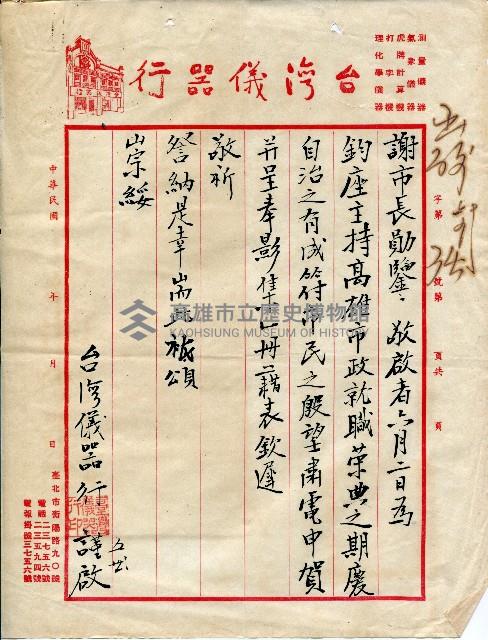 台湾儀器行
測量儀器
氣象儀器
虎牌計算機
打字機
理化學儀器
字第
號第
頁共
頁
謝市長勛鑒：敬啟者六月二日為
鈞座主持高雄市政就職榮典之期慶
自治之有成符市民之殷望肅電申賀
并呈奉影集乙冊藉表欽遲
敬祈
詧納是幸耑此祗頌
崇綏
台湾儀器行 謹啟
五廿
中華民國 年 月 日
臺北市衡陽路九〇號
電話二三七五六號
二三五九四號
電報掛號三七五六
高雄市立歷史博物館
KAOHSIUNG MUSEUM OF HISTORY